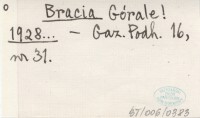 Bracia Górale!
1928... — Gaz. Podh. 16,
nr 31.
67/006/0383